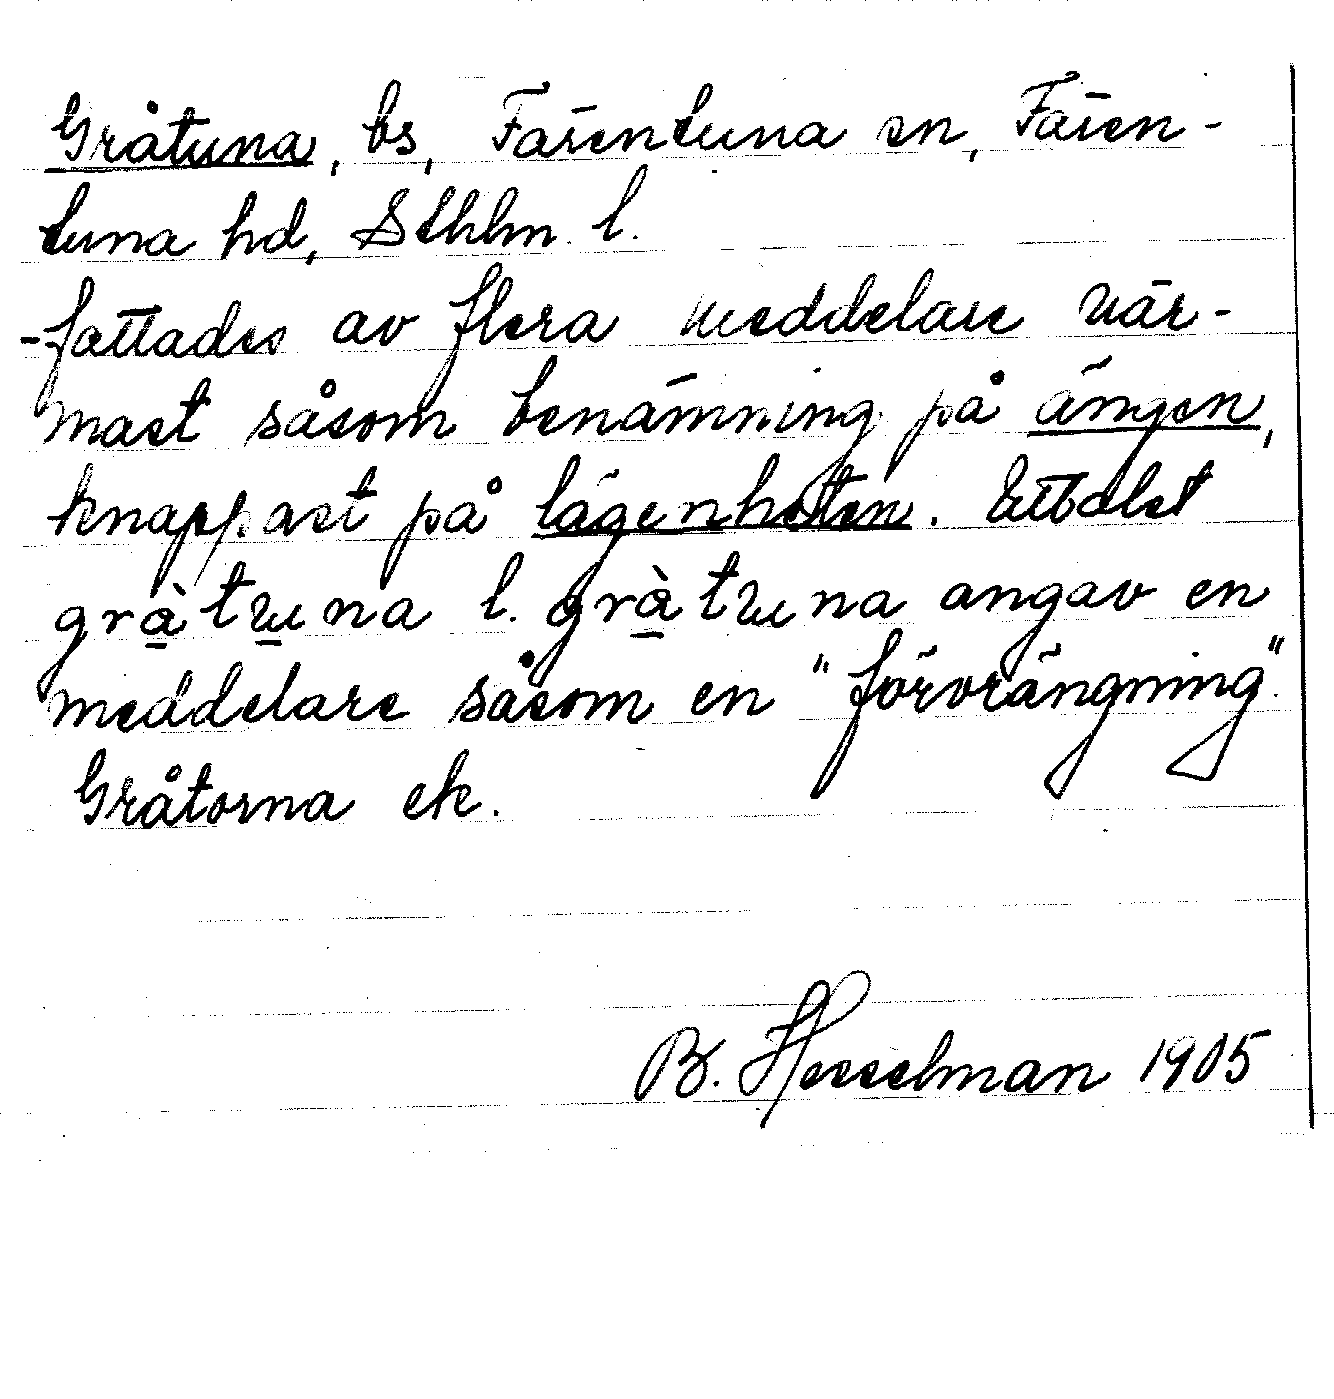 Gråtuna, bs, Färentuna sn, Fären-
tuna hd, Sthlm l.
-fattades av flera meddelare när-
mast såsom benämning på ängen,
knappast på lägenheten. Uttalet
gràtuna l. gràtuna angav en
meddelare såsom en "förvrängning"
Gråtorna ek.
B. Hesselman 1905